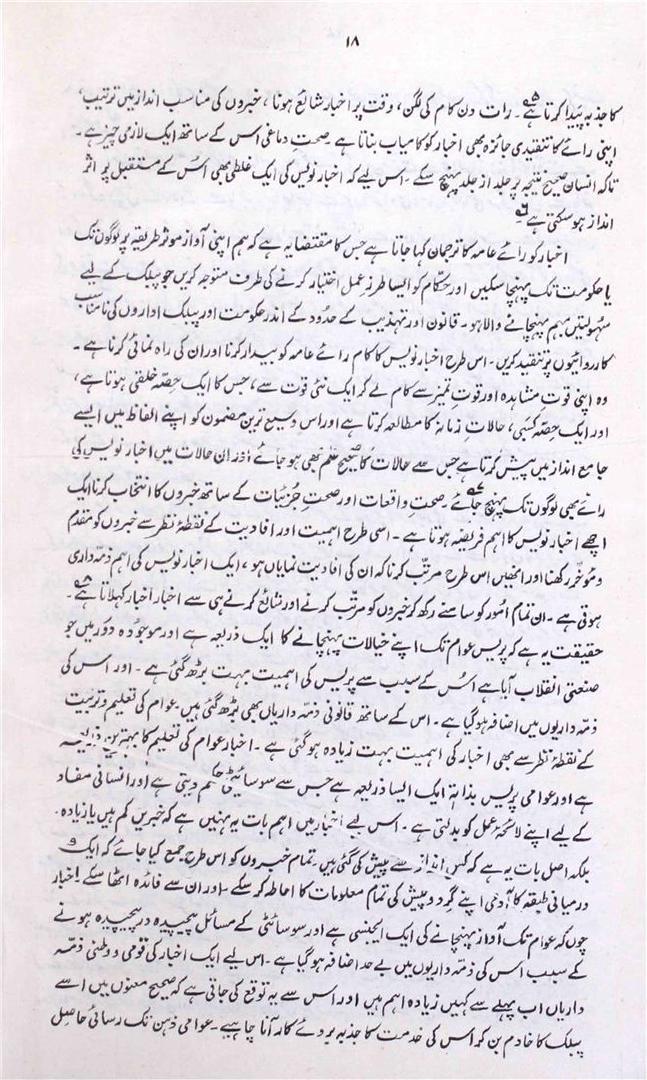 ۱۸
کا جذبہ پیدا کرتا ہے۵۔ رات دن کام کی لگن، وقت پر اخبار شائع ہونا، خبروں کی مناسب انداز میں ترتیب،
اپنی رائے کا تنقیدی جائزہ بھی اخبار کو کامیاب بناتا ہے۔ صحتِ دماغی اس کے ساتھ ایک لازمی چیز ہے۔
تاکہ انسان صحیح نتیجہ پر جلد از جلد پہنچ سکے۔ اس لیے کہ اخبار نویس کی ایک غلطی بھی اس کے مستقبل پر اثر
انداز ہو سکتی ہے۶۔
اخبار کو رائے عامہ کا ترجمان کہا جاتا ہے جس کا مقتضا یہ ہے کہ ہم اپنی آواز موثر طریقہ پر لوگوں تک
یا حکومت تک پہنچا سکیں اور حکام کو ایسا طرزِ عمل اختیار کرنے کی طرف متوجہ کریں جو پبلک کے لیے
سہولتیں بہم پہنچانے والا ہو۔ قانون اور تہذیب کے حدود کے اندر حکومت اور پبلک اداروں کی نامناسب
کارروائیوں پر تنقید کریں۔ اس طرح اخبار نویس کا کام رائے عامہ کو بیدار کرنا اور ان کی راہ نمائی کرنا ہے۔
وہ اپنی قوت مشاہدہ اور قوتِ تمیز سے کام لے کر ایک نئی قوت سے، جس کا ایک حصّہ خلقی ہوتا ہے،
اور ایک حصّہ کسبی، حالاتِ زمانہ کا مطالعہ کرتا ہے اور اس وسیع ترین مضمون کو اپنے الفاظ میں ایسے
جامع انداز میں پیش کرتا ہے جس سے حالات کا صحیح علم بھی ہو جائے اور ان حالات میں اخبار نویس کی
رائے بھی لوگوں تک پہنچ جائے۷۔ صحتِ واقعات اور صحتِ جزئیات کے ساتھ خبروں کا انتخاب کرنا ایک
اچھے اخبار نویس کا اہم فریضہ ہوتا ہے۔ اسی طرح اہمیت اور افادیت کے نقطۂ نظر سے خبروں کو مقدم
و مؤخر رکھنا اور انھیں اس طرح مرتّب کرنا کہ ان کی افادیت نمایاں ہو، ایک اخبار نویس کی اہم ذمّہ داری
ہوتی ہے۔ ان تمام اُمور کو سامنے رکھ کر خبروں کو مرتّب کرنے اور شائع کرنے ہی سے اخبار اخبار کہلاتا ہے۸۔
حقیقت یہ ہے کہ پریس عوام تک اپنے خیالات پہنچانے کا ایک ذریعہ ہے اور موجودہ دور میں جو
صنعتی انقلاب آیا ہے اُس کے سبب سے پریس کی اہمیت بہت بڑھ گئی ہے۔ اور اس کی
ذمّہ داریوں میں اضافہ ہو گیا ہے۔ اس کے ساتھ قانونی ذمّہ داریاں بھی بڑھ گئی ہیں۔ عوام کی تعلیم و تربیت
کے نقطۂ نظر سے بھی اخبار کی اہمیت بہت زیادہ ہو گئی ہے۔ اخبار عوام کی تعلیم کا بہترین ذریعہ
ہے اور عوامی پریس بذاتہٖ ایک ایسا ذریعہ ہے جس سے سوسائٹی جنم دیتی ہے اور انسانی مفاد
کے لیے اپنے لائحۂ عمل کو بدلتی ہے۔ اس لیے اخبار میں اہم بات یہ نہیں ہے کہ خبریں کم ہیں یا زیادہ۔
بلکہ اصل بات یہ ہے کہ کس انداز سے پیش کی گئی ہیں۔ تمام خبروں کو اس طرح جمع کیا جائے کہ ایک
درمیانی طبقہ کا آدمی اپنے گرد و پیش کی تمام معلومات کا احاطہ کر سکے۔ اور ان سے فائدہ اٹھا سکے۹۔ اخبار
چوں کہ عوام تک آواز پہنچانے کی ایک ایجنسی ہے اور سوسائٹی کے مسائل پیچیدہ در پیچیدہ ہونے
کے سبب اس کی ذمّہ داریوں میں بے حد اضافہ ہو گیا ہے۔ اس لیے ایک اخبار کی قومی و وطنی ذمّہ
داریاں اب پہلے سے کہیں زیادہ اہم ہیں اور اس سے یہ توقع کی جاتی ہے کہ صحیح معنوں میں اسے
پبلک کا خادم بن کر اس کی خدمت کا جذبہ بروئے کار آنا چاہیے۔ عوامی ذہن تک رسائی حاصل